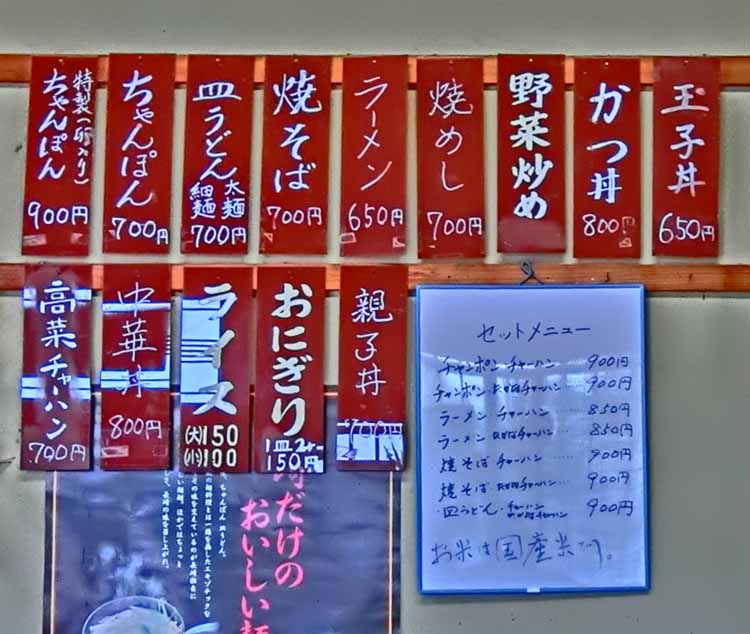 特製(卵入り)
ちゃんぽん
900円
ちゃんぽん
700円
皿うどん
太麺
細麺
700円
焼そば
700円
ラーメン
650円
焼めし
700円
野菜炒め
かつ丼
800円
玉子丼
650円
高菜チャーハン
700円
中華丼
800円
ライス
(大)150
(小)100
おにぎり
1皿2ヶ
150円
親子丼
700円
セットメニュー
チャンポン・チャーハン 900円
チャンポン・たかなチャーハン 900円
ラーメン・チャーハン …… 850円
ラーメン たかなチャーハン … 850円
焼そば チャーハン …… 900円
焼そば たかなチャーハン …… 900円
・皿うどん・チャーハン
たかなチャーハン 900円
お米は国産米です。
だけの
おいしい